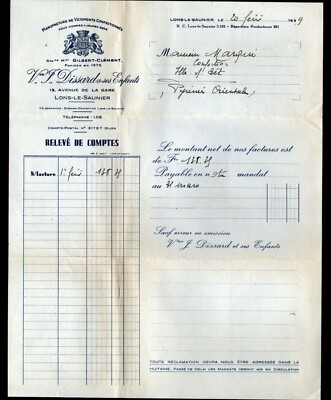 MANUFACTURE DE VÊTEMENTS CONFECTIONNÉS
POUR HOMMES & JEUNES GENS
ANCne MON GILBERT-CLÉMENT,
FONDÉE EN 1875
Vve J. Dissard & ses Enfants
13, AVENUE DE LA GARE
LONS-LE-SAUNIER
TÉLÉPHONE : 1.05
COMPTE-POSTAL N° 31767 DIJON
RELEVÉ DE COMPTES
LONS-LE-SAUNIER, le 20 fév 1939
R. C. Lons-le-Saunier
Monsieur
Confection
Pyrénées Orientales
N/facture 1er fév 128.25
Le montant net de nos factures est
de Frs 128.25
Payable en n/ mandat
au 31 mars
Sauf erreur ou omission
Vve J. Dissard et ses Enfants
TOUTE RÉCLAMATION DEVRA NOUS ÊTRE ADRESSÉE DANS LA
HUITAINE. PASSÉ CE DÉLAI LES MANDATS SERONT MIS EN CIRCULATION